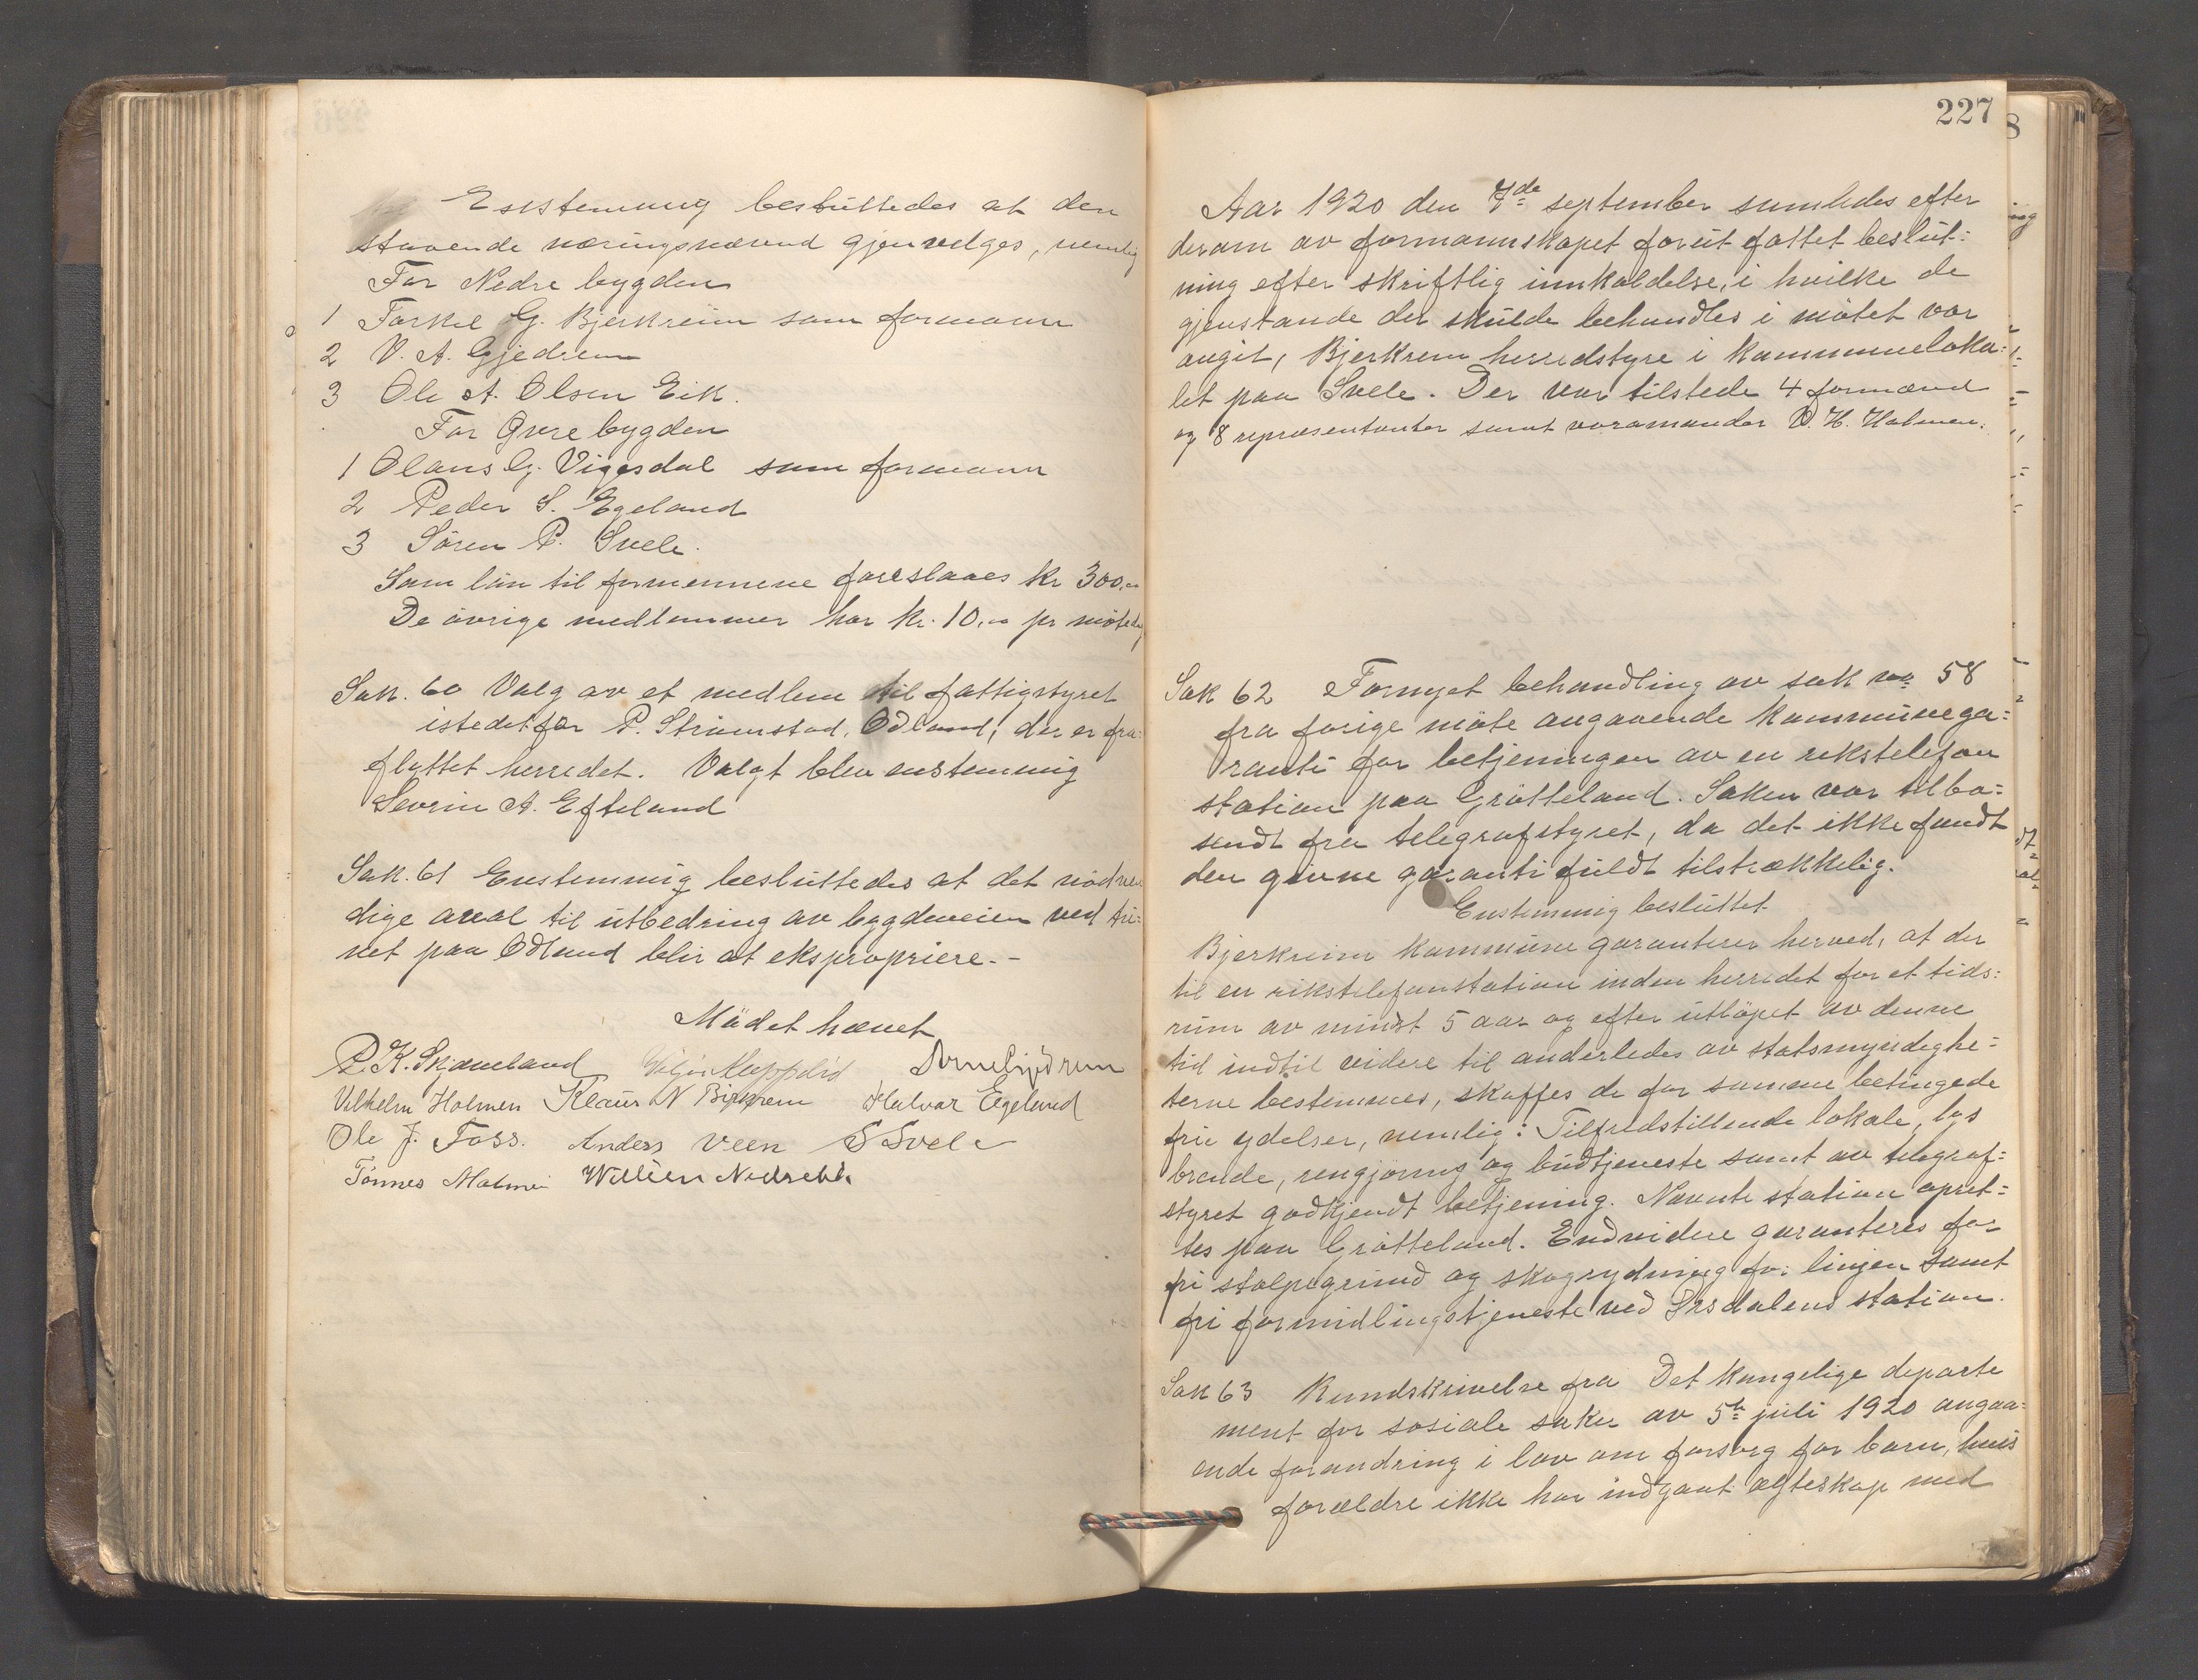 Enstemmig besluttedes at den
staaende næringsnævnd gjenvelges, nemlig
For Nedre bygden
1 Torkel G. Bjerkreim som formann
2 V. A. Gjedrem
3 Ole A. Olsen Eik.
For Øvre bygden
1 Olaus G. Vigesdal som formann
2 Peder S. Egeland
3 Sören P. Svele.
Som lön til formennene foreslaaes kr 300,00
De övrige medlemmer har kr. 10,00 pr mötedag
Sak. 60 Valg av et medlem til fattigstyret
istedetfor P. Strömstad, Ödland, der er fra-
flyttet herredet. Valgt blev enstemmig
Sevrin A. Efteland
Sak. 61 Enstemmig besluttedes at det nödven
dige areal til utbedring av bygdeveien ved tu-
net paa Ödland blir at ekspropriere.-
Mödet hævet
P. K. Skjæveland
Vilhelm Holmen Klaus N Birkrem Halvor Egeland
Ole J. Foss. Anders Veen S Svele
Tönnes Malmei Willien Nedrebö.
227
Aar 1920 den 7de september samledes efter
derom av formannskapet forut fattet beslut:
ning efter skriftlig innkaldelse, i hvilke de
gjenstande der skulde behandles i mötet var
angit, Bjerkrem herredstyre i kommuneloka:
let paa Svele. Der var tilstede 4 formænd
og 8 repræsentanter samt varamander V. H. Holmen.
Sak 62 Fornyet behandling av sak no 58
fra forige möte angaaende kommunega:
ranti for betjeningen av en rikstelefon
station paa Grötteland. Saken var tilba:
sendt fra telegrafstyret, da det ikke fandt
den givne garanti fuldt tilstrækkelig.
Enstemmig besluttet
Bjerkreim kommune garanterer herved, at der
til en rikstelefonstation inden herredet for et tids:
rum av mindst 5 aar og efter utlöpet av denne
tid indtil videre til anderledes av statsmyndighe:
terne bestemmes, skaffes de for samme betingede
frie ydelser, nemlig: Tilfredstillende lokale, lys
brende, rengjöring og budtjeneste samt av telegraf:
styret godkjendt betjening. Nævnte station opret:
tes paa Grötteland. Endvidere garanteres for
fri stolpegrund og skogrydning for linjen samt
fri formidlingstjeneste ved Örsdalens station.
Sak 63 Rundskrivelse fra Det kongelige departe
ment for sosiale saker av 5te juli 1920 angaa:
ende forandring i lov om forsorg for barn, hvis
forældre ikke har indgaat ægteskap med